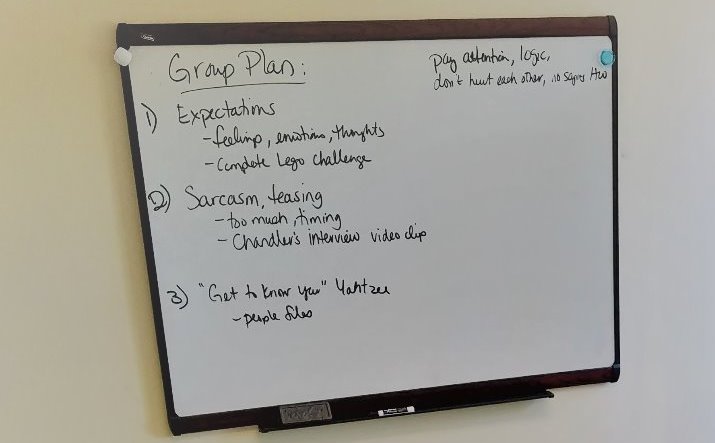 Group Plan:
pay attention, logic,
don't hurt each other, no
1) Expectations
- feelings, emotions, thoughts
- Complete Lego challenge
2) Sarcasm, teasing
- too much, timing
- Chandler's interview video clip
3) "Get to know you" Yahtzee
- people files